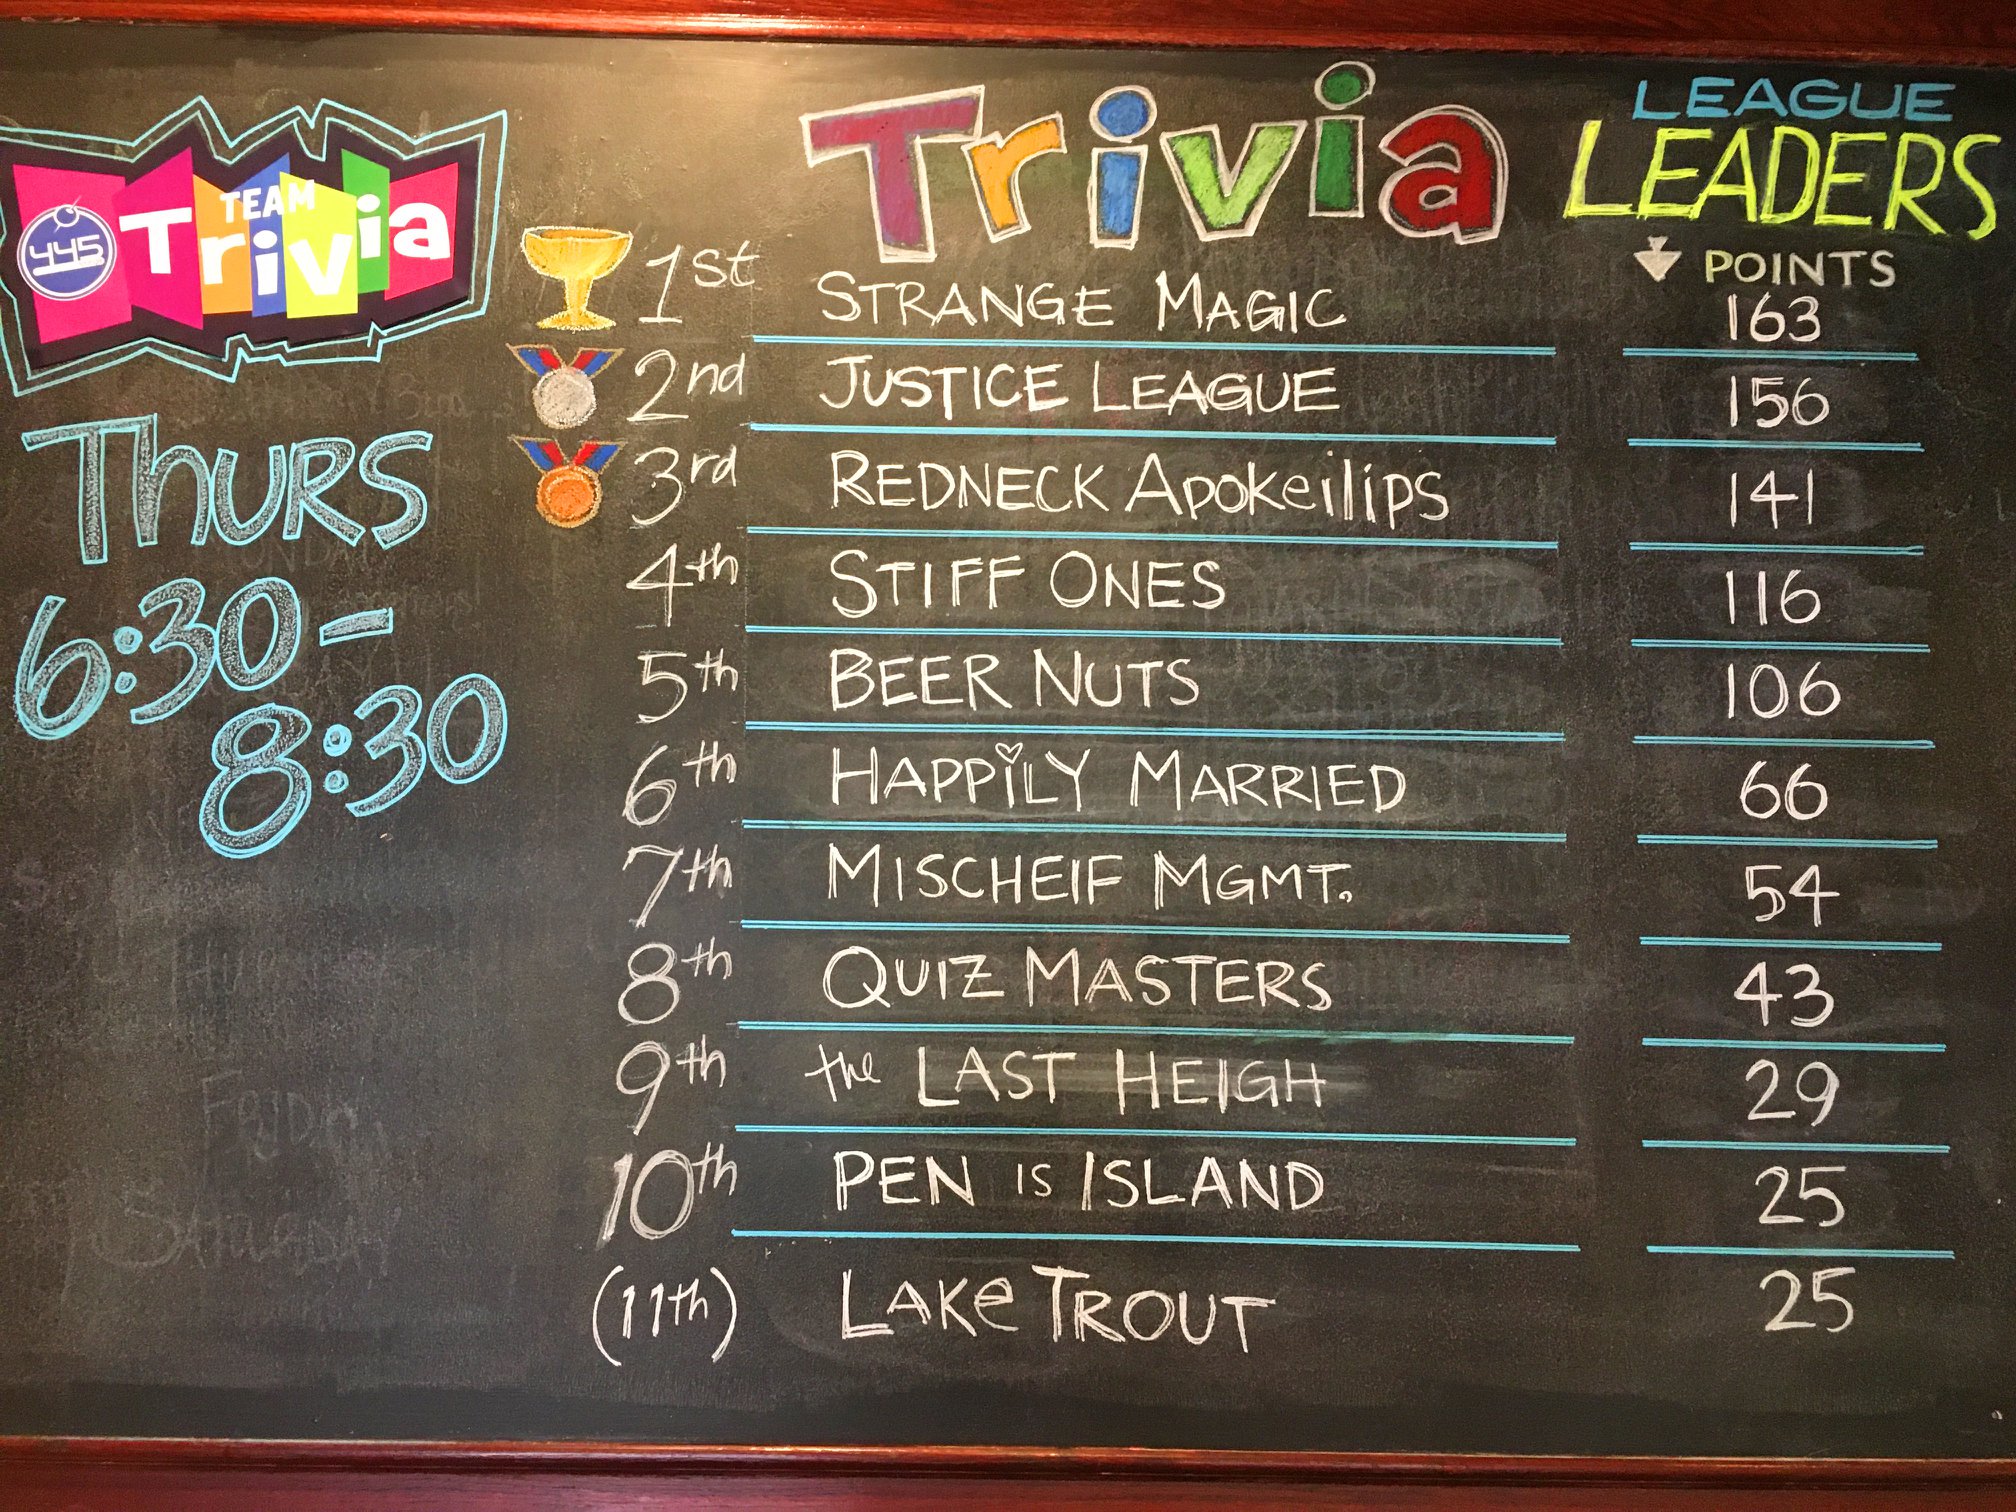 445
TEAM
Trivia
THURS
6:30-
8:30
Trivia
LEAGUE
LEADERS
POINTS
1st STRANGE MAGIC 163
2nd JUSTICE LEAGUE 156
3rd REDNECK Apokeilips 141
4th STIFF ONES 116
5th BEER NUTS 106
6th HAPPiLY MARRIED 66
7th MISCHEIF MGMT. 54
8th QUIZ MASTERS 43
9th the LAST HEIGH 29
10th PEN IS ISLAND 25
(11th) LAKe TROUT 25